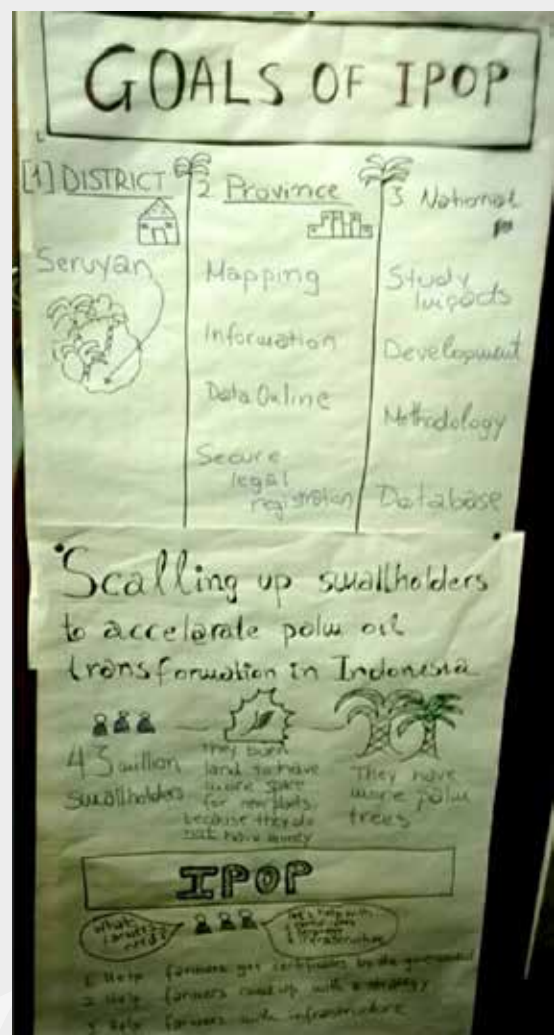 GOALS OF IPOP
[1] DISTRICT
Seruyan
2 Province
Mapping
Information
Data Online
Secure
legal
registration
3 National
Study
Impacts
Development
Methodology
Database
Scalling up smallholders
to accelarate palm oil
transformation in Indonesia
million
smallholders
They burn
land to have
more space
for new plants,
because they do
not have money
They have
more palm
trees
IPOP
What
farmers
need?
help with
infrastructure
1 Help farmers get certificates by the government
2 Help farmers come up with a strategy
3 Help farmers with infrastructure